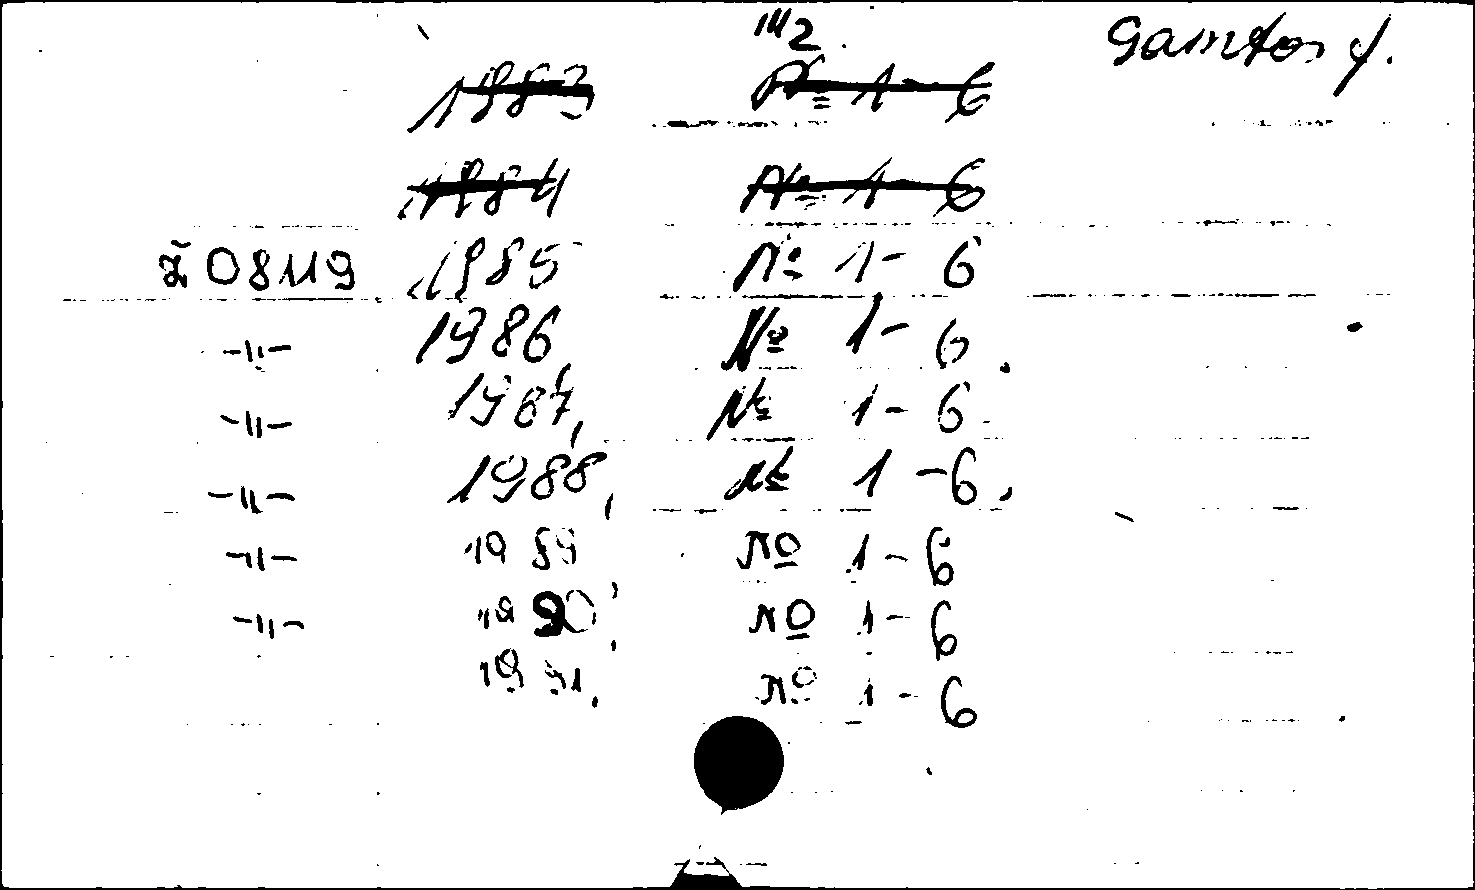 III2 Gamtos f.
1983 № 1-6
1984 № 1-6
Ž 08119 1985 № 1-6
-"- 1986, № 1-6.
-"- 1987, № 1-6
-"- 1988, № 1-6.
-"- 1989 № 1-6
-"- 1990, № 1-6
1991. № 1-6